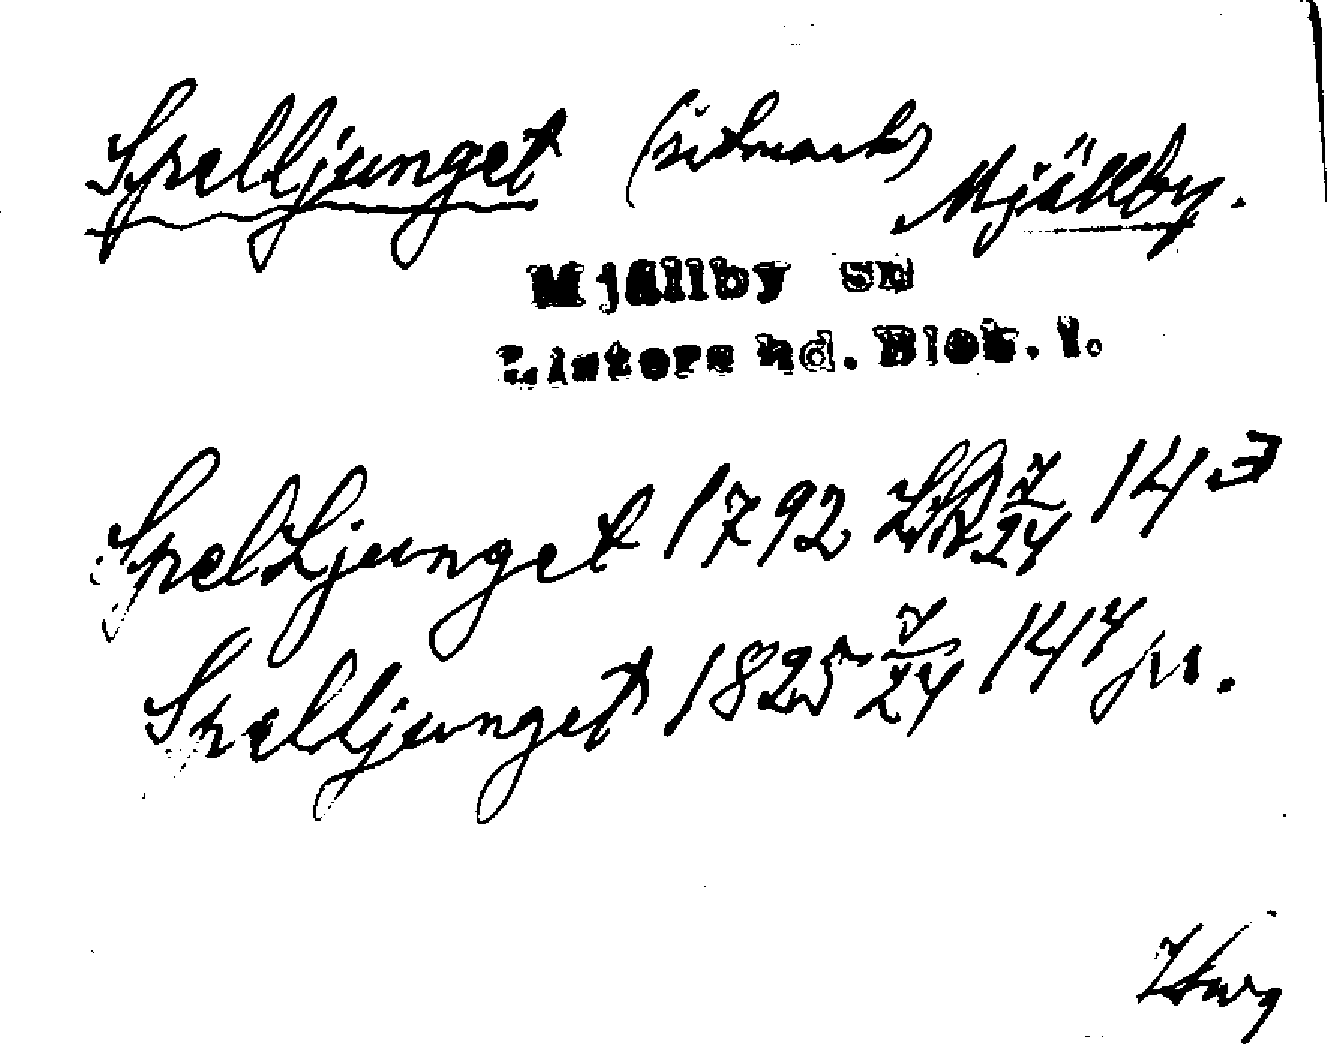 Spelljunget (utmark) Mjällby.
Mjällby sn
Listers hd. Blek. l.
SpelLjunget 1792 LSA 7/24 143
Spelljunget 1825 7/24 144